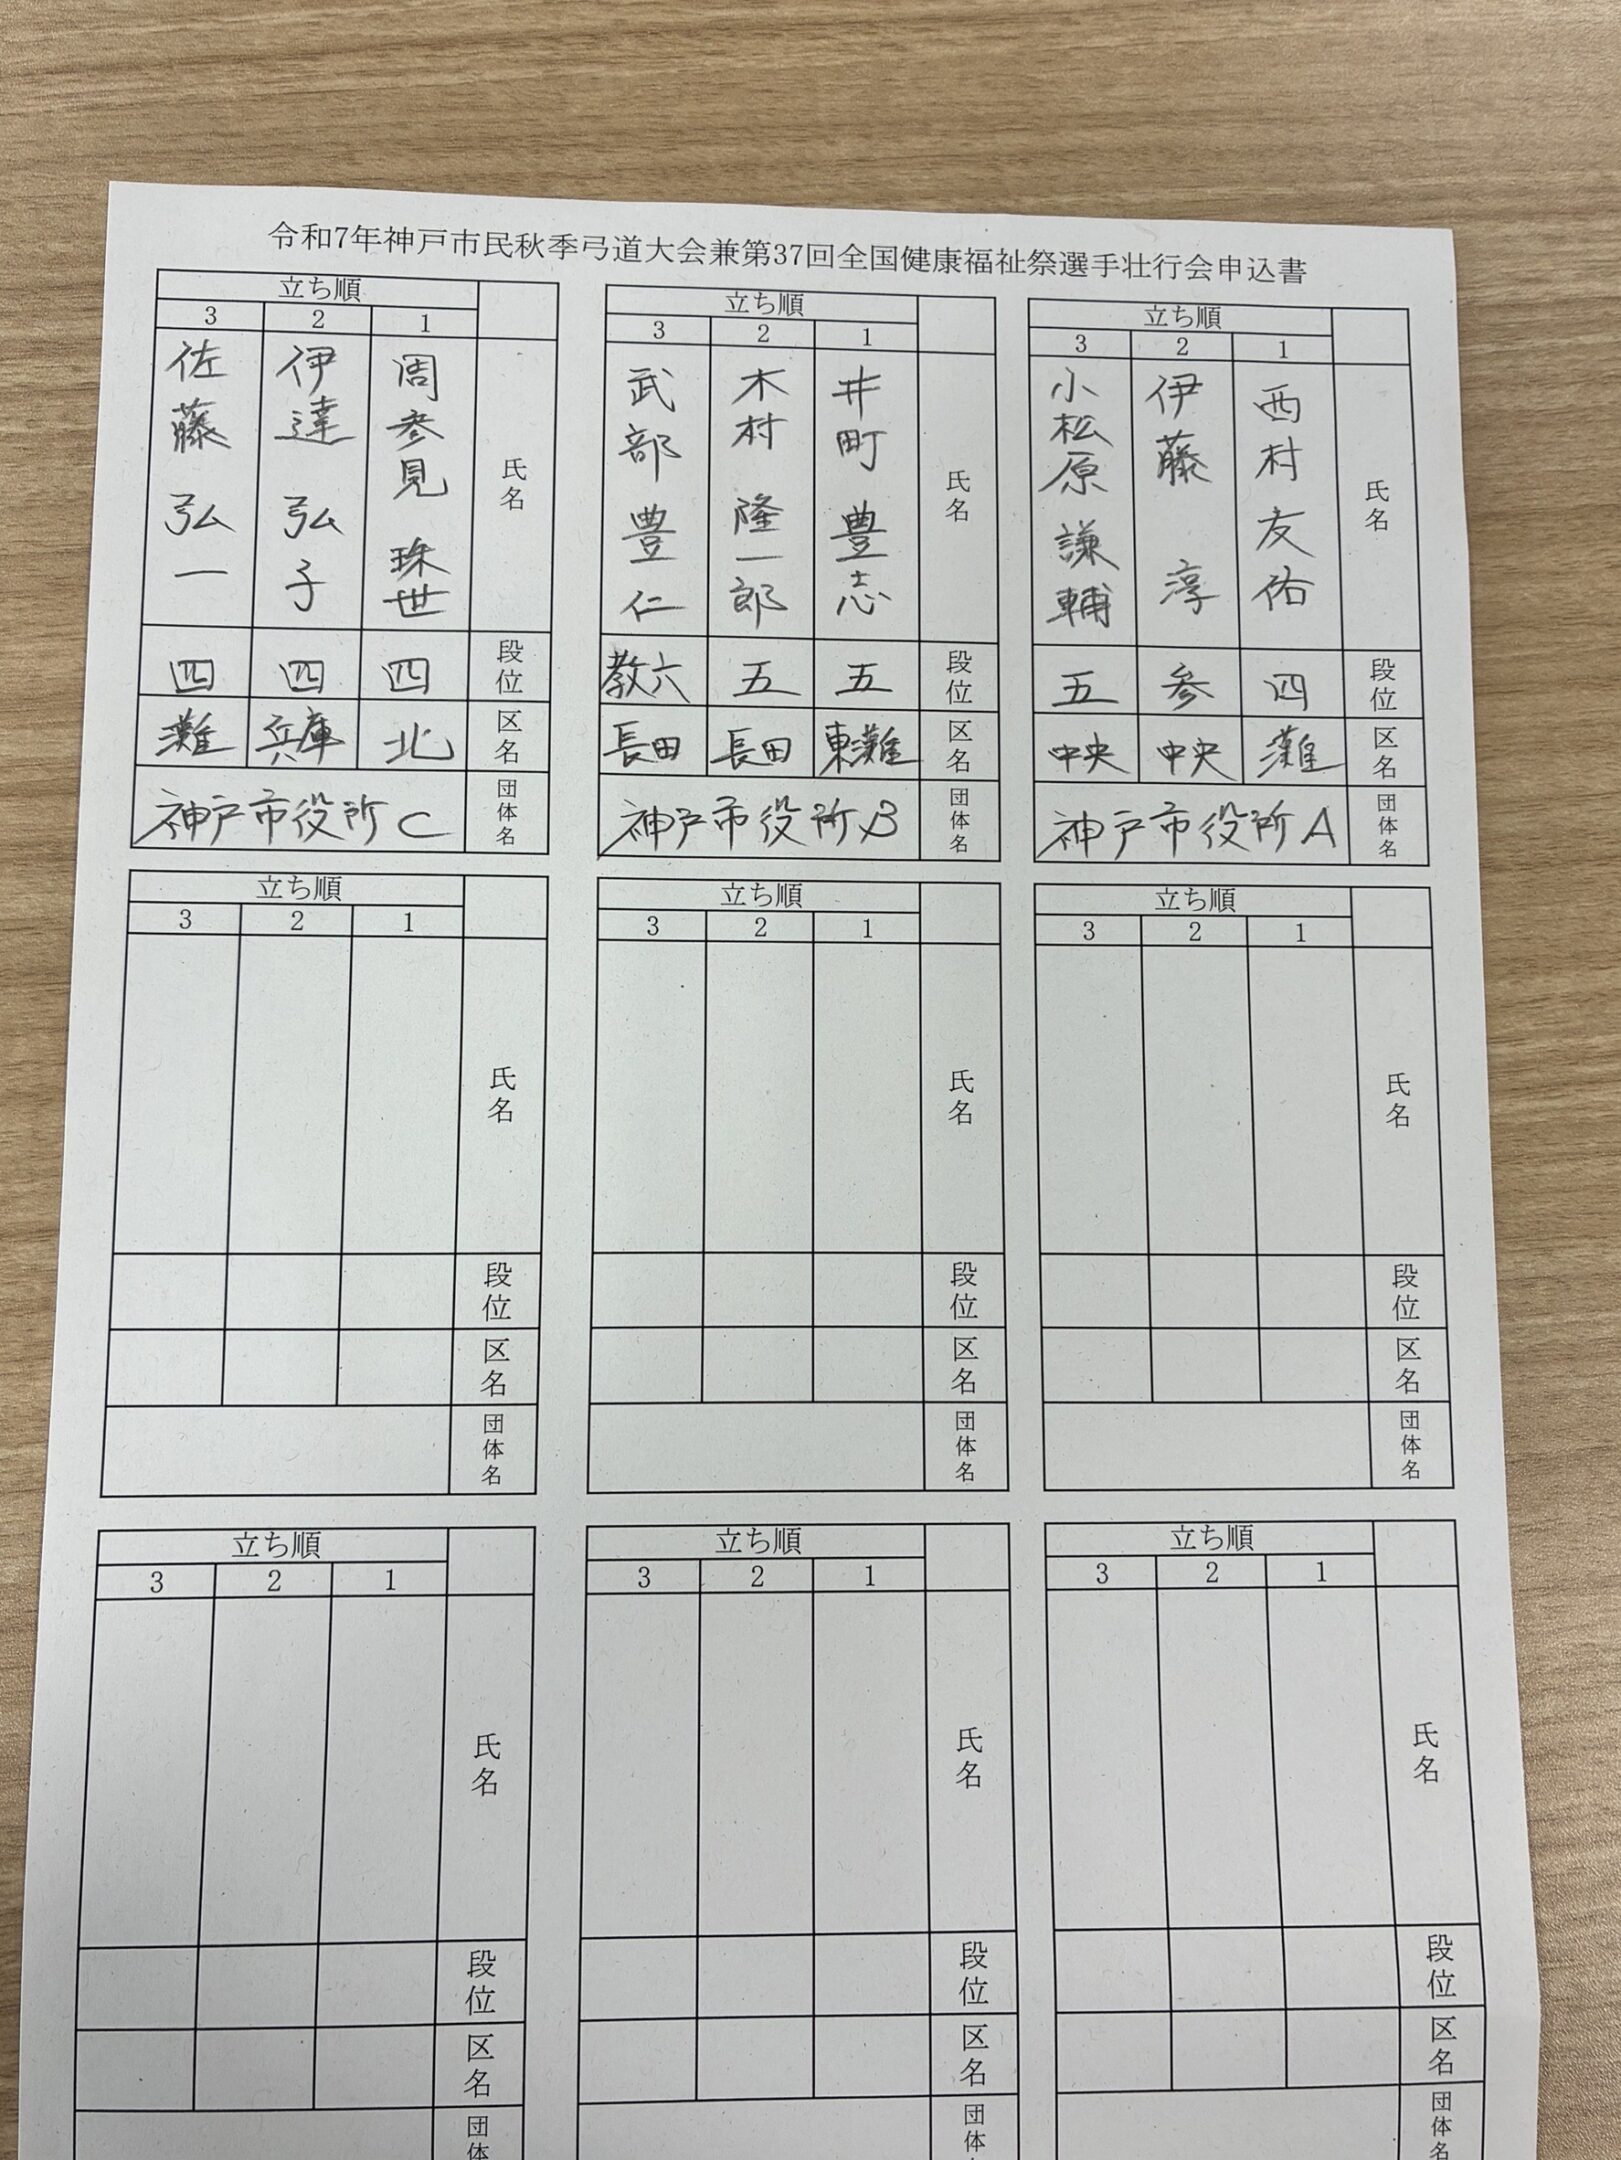 令和7年神戸市民秋季弓道大会兼第37回全国健康福祉祭選手壮行会申込書
立ち順
1
2
3
氏名
西村 友佑
伊藤 淳
小松原 謙輔
段位
四
参
五
区名
灘
中央
中央
団体名
神戸市役所A
立ち順
1
2
3
氏名
井町 豊志
木村 隆一郎
武部 豊仁
段位
五
五
教六
区名
東灘
長田
長田
団体名
神戸市役所B
立ち順
1
2
3
氏名
周参見 珠世
伊達 弘子
佐藤 弘一
段位
四
四
四
区名
北
兵庫
灘
団体名
神戸市役所C
立ち順
1
2
3
氏名
段位
区名
団体名
立ち順
1
2
3
氏名
段位
区名
団体名
立ち順
1
2
3
氏名
段位
区名
団体名
立ち順
1
2
3
氏名
段位
区名
団体名
立ち順
1
2
3
氏名
段位
区名
団体
立ち順
1
2
3
氏名
段位
区名
団体